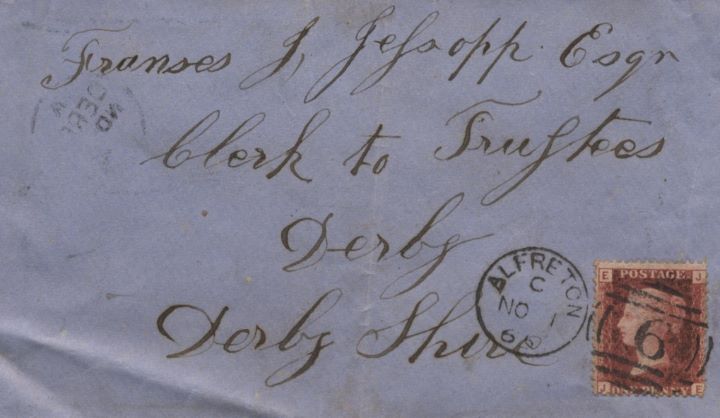 Franses J, Jeſsopp Esqr
Clerk to Truſtees
Derby
Derby Shire
DERBY
NO
ALFRETON
C
NO 1
E POSTAGE J
6
J ONE PENNY E